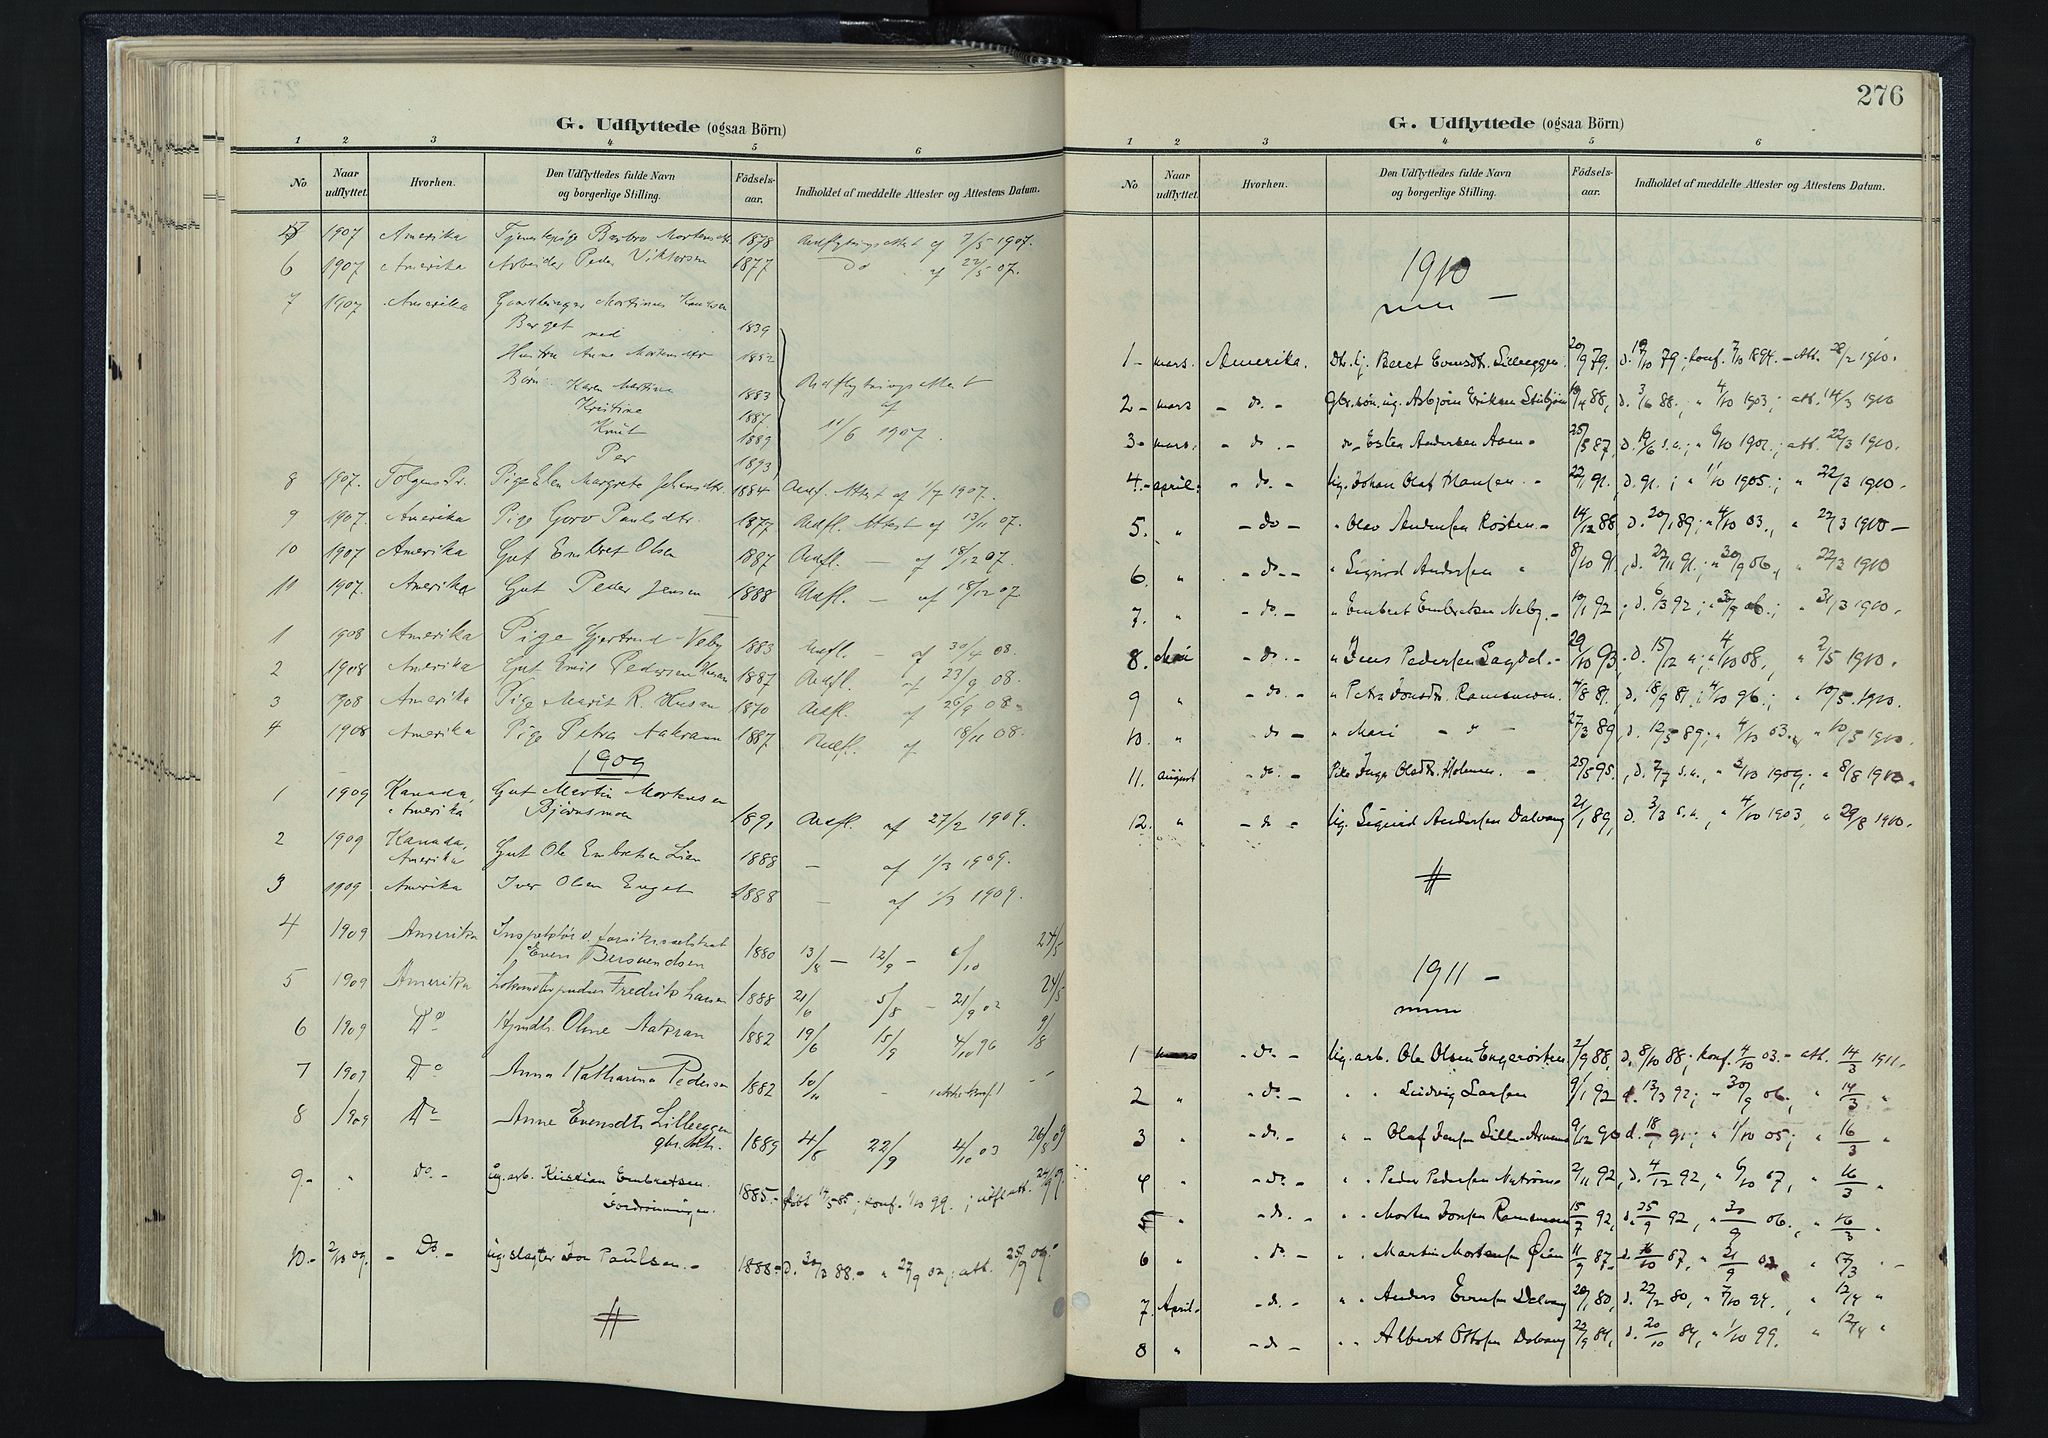 G. Udflyttede (ogsaa Börn)
1 2 3 4 5 6
No Naar udflyttet. Hvorhen. Den Udflyttedes fulde Navn og borgerlige Stilling. Födsels-aar. Indholdet af meddelte Attester og Attestens Datum.
1907 Amerika Tjenestepige Barbro 1878 Udflytningsattest af 7/5 1907.
6 1907 Amerika Arbeider Peder Viktorsen 1877 Do af 22/5 07.
7 1907 Amerika Gaardbruger Martinus Knutsen
Berget med 1839
Hustru Anne 1852
Børn: Karen Martina 1883 Udflytningsattest
Kristine 1887 af
Knut 1889 11/6 1907.
Per 1893
8 1907. Pige Elen Margrete 1884 Udf. Attest af 1/7 1907.
9 1907. Amerika Pige Goro Paulsdtr. 1877 Udfl. Attest af 13/11 07.
10 1907 Amerika Gut Embret Olsen 1887 Udfl. — af 18/12 07.
11 1907. Amerika Gut Peder Jensen 1888 Udfl. — af 18/12 07
1 1908 Amerika Pige Gjertrud 1883 Udfl. — af 30/4 08.
2 1908 Amerika Gut Emil Pedersen 1887 Udfl. af 23/9 08.
3 1908 Amerika Pige Marit R. 1870 Udfl. af 26/9 08.
4 1908 Amerika Pige Petra Aakrann 1887 Udfl. af 18/11 08.
1909
1 1909 Kanada, Gut Martin Mortensen
Amerika Bjørnsmoen 1891 Udfl. af 27/2 1909.
2 1909 Kanada,
Amerika Gut Ole Embretsen Lien 1888 — af 1/3 1909.
3 1909 Amerika Iver Olsen Enget 1888 — af 1/3 1909.
4 1909 Amerika Inspektør v.
Even Bersvendsen 1880 13/8 — 12/9 — 6/10 24/5
5 1909 Amerika Fredrik Larsen 1888 21/6 5/8 — 21/9 02 24/5
6 1909 Do Oline Aakran 1882 19/6 15/9 4/10 96 9/8
7 1909 Do Anna Katharina Pedersen 1882 10/11 —
8 1909 Do Anne Evensdtr. Lilleeggen
gbr.dtr. 1889 4/8 22/9 4/10 03 26/8 09
9.- " Do. - ug.arb. Kristian Embretsen
1885.- født 14/5 85; konf. 1/10 99.; udfl.att. 24/9 09.
10.- 2/10 09. - Do. - ug.slagter Jon Paulsen. - 1888.- d. 88. - " 27/9 02; att. 25/9 09.
#
276
G. Udflyttede (ogsaa Börn)
1 2 3 4 5 6
No Naar udflyttet. Hvorhen. Den Udflyttedes fulde Navn og borgerlige Stilling. Födsels-aar. Indholdet af meddelte Attester og Attestens Datum.
1910
1 - mars. Amerika. Beret Evensdtr. Lilleeggen. 20/9 79. d. 19/10 79; konf. 7/10 1894. - att. 28/2 1910.
2 - mars - do. - gbr.søn, ug. Asbjørn Eriksen 19/4 88, d. 3/6 88. " 4/10 1903; att. 14/3 1910
3 - mars. - do. - Esten Andersen Aaen 25/5 87, d. 19/6 s.a.; " 6/10 1902.; att. 22/3 1910.
4. - april. - do. - ug. Johan Olaf Hansen. - 22/1 91. d. 91.; " 1/10 1905.; " 22/3 1910.
5. " - do - " Olav Andersen Røsten. - 14/12 88, d. 20/1 89; " 4/10 03., " 22/3 1910 -
6. " - do - " Sigurd Andersen " 8/10 91., d. 22/11 91.; " 30/9 06., " 22/3 1910
7. " - do. - " Embret Embretsen Neby. - 10/1 92; d. 6/3 92; " 30/9 06.; " 31/3 1910.
8. Mai - do. - " Jens Pedersen Lagdal. - 29/10 93, d. 15/12 "; " 4/10 08, " 2/5 1910.
9 " - do. - " Petra Jonsdtr. Ramsmoen. 4/8 81., d. 18/9 81.; 4/10 96.; " 10/5. 1910.
10. " do - " Mari - " - 27/3 89, d. 12/5 89; " 4/10 03., " 10/5 1910.
11. august - do. - Pike Inga Olsdtr. Holmen. - 25/5 95., d. 7/7 s.a., " 3/10 1909; " 8/8 1910.
12. " - do - ug. Sigurd Andersen Dalvang 21/1 89, d. 3/3 s.a., " 4/10 1903, " 29/8 1910.
#
1911 -
1 mars - do. - ug. arb. Ole Olsen Engerøsten 2/9 88, d. 8/10 88; konf. 4/10 03. - att. 14/3 1911.
2 " - do. - " " Ludvig Larsen 9/1 92 d. 13/3 92; " 30/9 06., " 14/3 "
3 " - do. - " " Olaf Jensen 9/12 90 d. 18/1 91; " 1/10 05; " 16/3 "
4 " - do. - " " Peder Pedersen Nystrøm 2/11 92, d. 4/12 92, " 6/10 07, " 16/3 "
5 " - do. - " " Morten Jonsen Ramsmoen 15/7 92, d. 25/9 92, " 30/9 06., " 16/3 "
6 " - do. - " " Martin Mortensen Øien 11/9 87. d. 16/10 87, " 21/9 02 " 17/3 "
7. April. - do. - " " Anders Evensen Dalvang 20/1 80, d. 22/2 80, " 7/10 94., " 12/4 "
8 " - do - " " Albert Ottosen Dalvang 22/9 84, d. 20/10 84, " 1/10 99. " 12/4 "